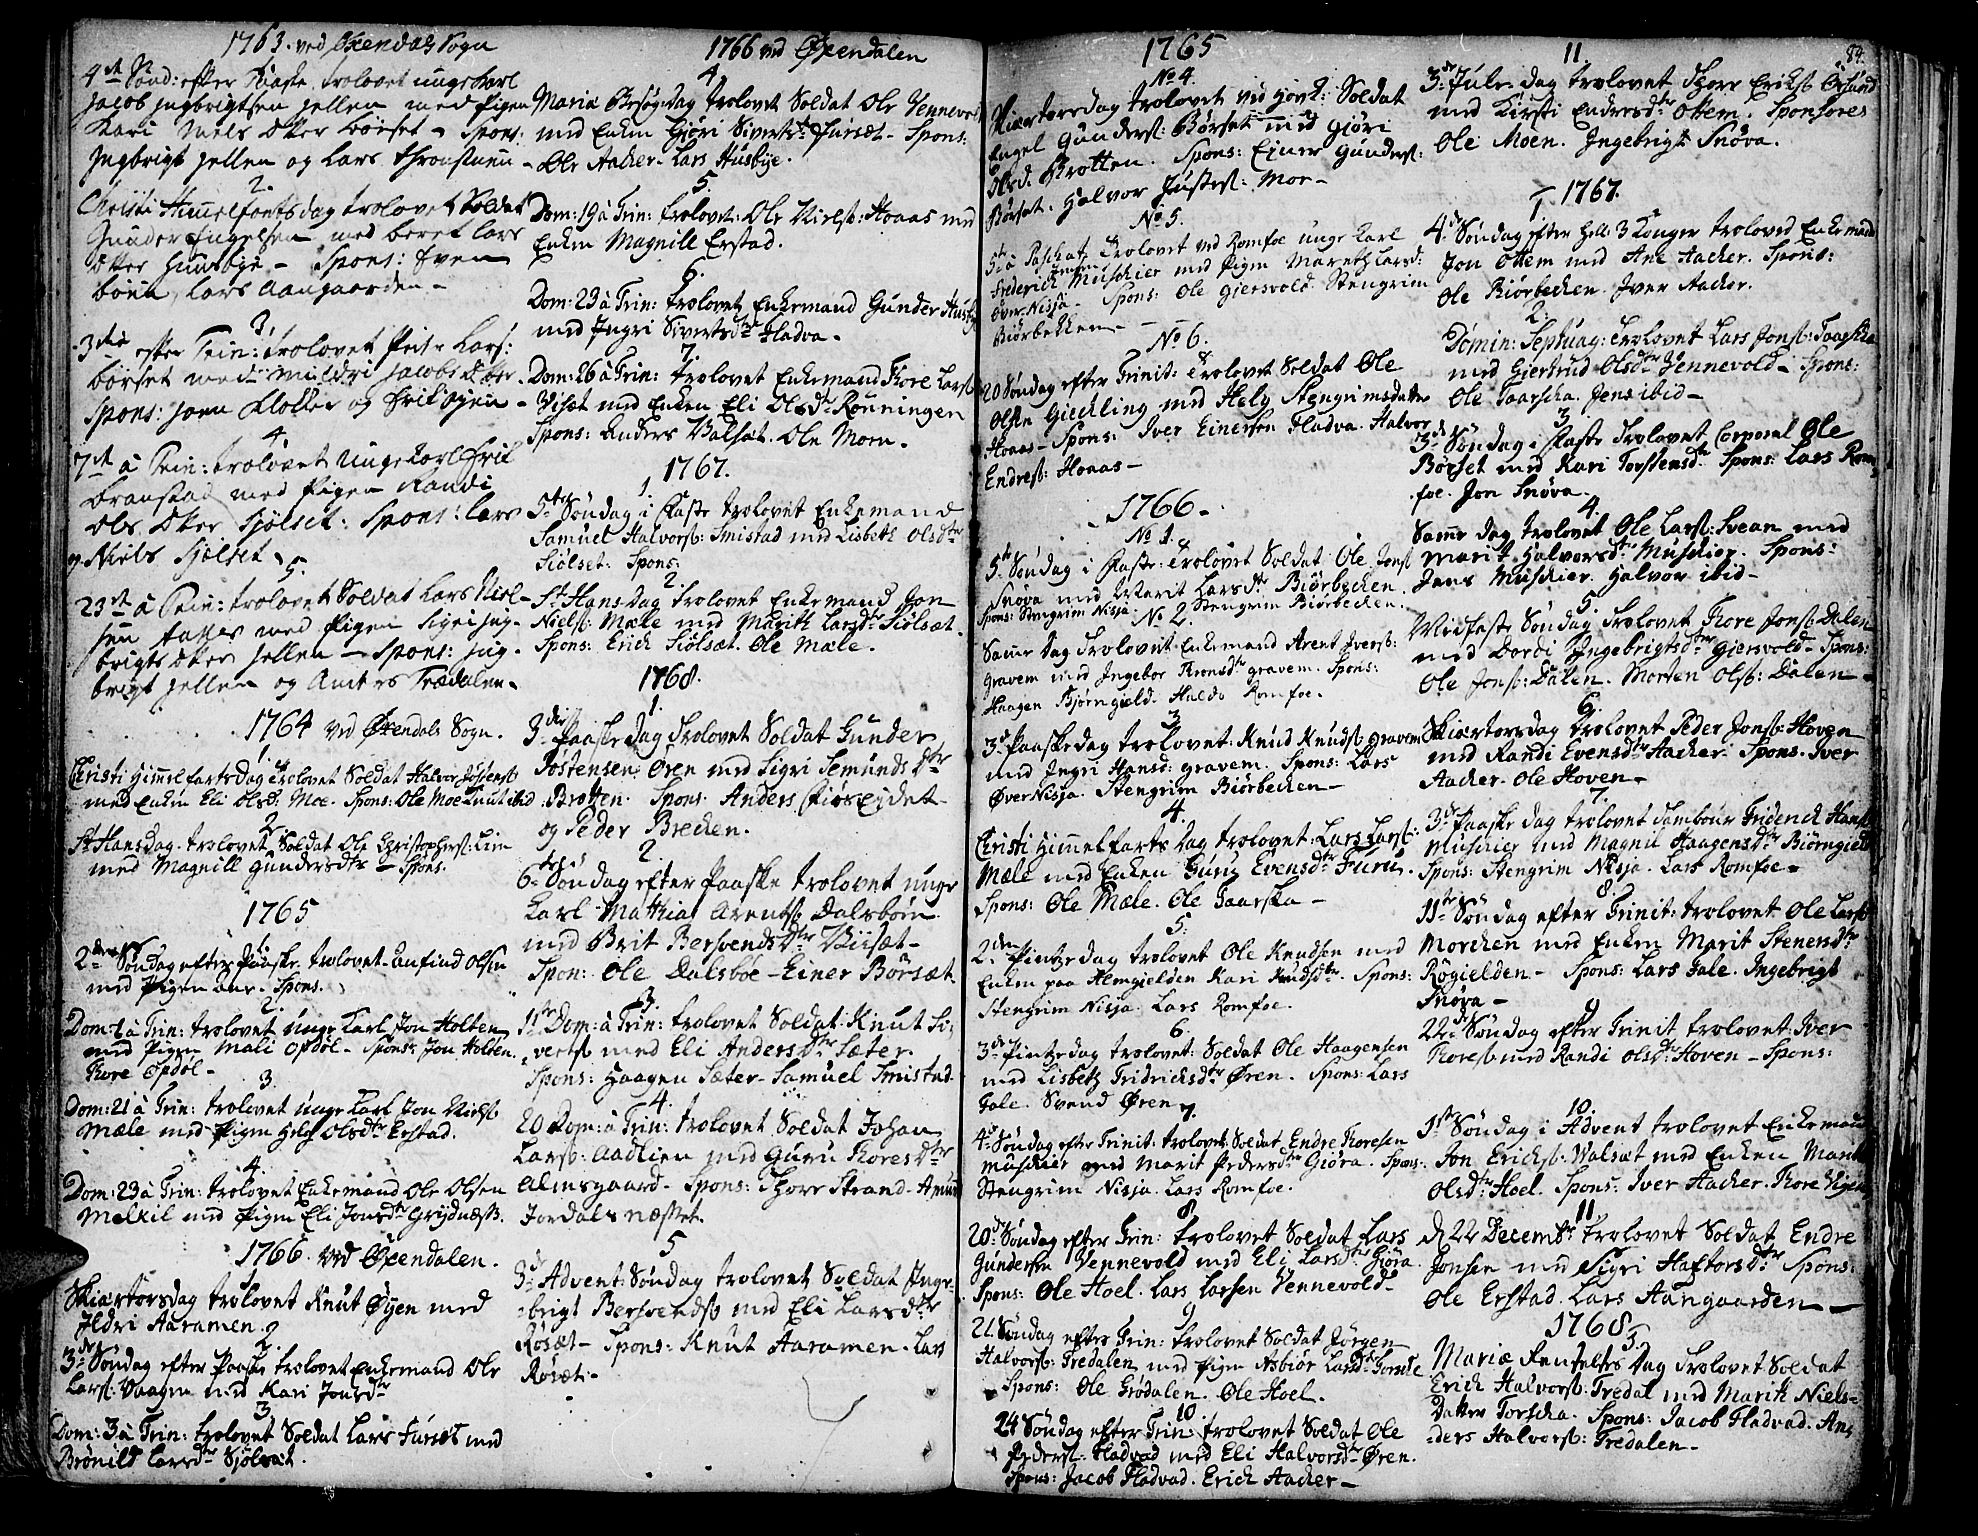 1763. ved Øxendals Sogn
4de Sønd: efter Paaske trolovet unge Karl
Jacob Jngbrigtsen Jellen med Pigen
Kari Niels dtter Børset - Spons:
Jngbrigt Jellen og Lars
2.
Christi Himelfartsdag trolovet Soldat
Gunder Engelsen med beret Lars
dtter Huusbye - Spons: Sven
Lars Aangaarden -
3.
3die efter Trin: trolovet Peter Lars:
børset med Mildri Jacobs dtter
Spons: Joen Klokker og Erik Øyen -
4.
7de à Trin: trolovet Unge Karl Erik
Branstad med Pigen Randi
Ols dtter Sjølset: Spons: Lars
og Niels Sjølset
5.
23de à Trin: trolovet Soldat Lars Niel-
sen med Pigen Sigri Jng-
brigts dtter Jellen - Spons: Jng-
brigt Jellen og Anders Trædalen.
1764 ved Øxendals Sogn.
1.
Christi Himmelfartsdag trolovet Soldat Halvor
med Enken Eli Olsd: Moe. Spons: Ole Moe Knut ibid
2.
St Hansdag trolovet Soldat Ole Christophers: Lim
med Magnill Gundersdtr - Spons.
1765
1.
2den Søndag efter Paaske trolovet Anfind Olsen
med Pigen Ane. Spons.
2.
Dom: 1 à Trin: trolovet unge Karl Jon Holten
med Pigen Mali Opdøl - Spons: Jon Holten.
Thore Opdøl -
3.
Dom: 21 à Trin: trolovet unge Karl Jon Niels:
Mæle med Pigen Helg Olsdtr Erstad.
4.
Dom: 23 à Trin: trolovet Enkemand Ole Olsen
Melkil med Pigen Eli Jonsdtr Grydnæss.
1766. ved Øxendalen.
1
Skiærtorsdag trolovet Knut Øyen med
Jldri Aaramen.
2
3de Søndag efter Paaske trolovet Enkemand Ole
Lars: Vaagen med Kari Jonsdtr
3
Dom: 3 à Trin: trolovet Soldat Lars Fursæt med
Brønild Larsdtr Sjølsæt.
1766 ved Øxendalen
4
Mariæ Besøg: dag trolovet Soldat Ole Vennevold
med Enken Gjøri Sivertsdtr Fursæt - Spons:
Ole Aacker - Lars Husbye.
5.
Dom: 19 à Trin: trolovet: Ole Niels: Hoaas med
Enken Magnill Erstad.
6.
Dom: 23 à Trin: trolovet Enkemand Gunder Husby
med Jngri Sivertsdtr Fladva -
7
Dom: 26 à Trin: trolovet Enkemand Thore Lars:
Visæt med Enken Eli Olsdr Rønningen
Spons: Anders Valsæt. Ole Moen.
1767.
1
5te Søndag i Faste trolovet Enkemand
Samuel Halvors: Smistad med Lisbeth Olsdtr
Siölset: Spons:
2
St Hans dag trolovet Enkemand Jon
Niels: Mæle med Marith Larsdtr Siölsæt.
Spons: Erich Siölsæt. Ole Mæle.
1768.
1.
3die Paaske dag trolovet Soldat Gunder
Jostensen: Ören med Sigri Semunds Dtr
Brotten. Spons. Anders Fiöseidet
og Peder Brecken.
2
6te Søndag efter Paaske trolovet unge
Karl Mathias Arents: Dalsböen
med Brit Bersvends Dtr Viisæt -
Spon: Ole Dalsböe - Einer Börsæt
3.
11te Dom: à Trin: trolovet Soldat Knut Si-
verts: med Eli Anders Dtr Sæter.
Spons: Haagen Sæter - Samuel Smistad.
4.
20 Dom: à Trin: trolovet Soldat Johan
Lars: Aadlien med Guru Thores Dtr
Almsgaard - Spons: Thore Strand - Amund
Jordalsnæsset.
5
3de Advent Søndag trolovet Soldat Inge-
brigt Bersvends: med Eli Larsdtr
Røsæt - Spons: Knut Aaramen - Lars
Røsæt -
1765
No 4.
Skiærtorsdag trolovet ved Hovk: Soldat
Engel Gunders: Børset med Gjöri
Olsd. Brotten. Spons: Einer Gunders:
Børset. Halvor Justes: Moe -
No 5.
5te à Paschat: Trolovet ved Romfoe unge Karl
Frederich Muschier med Pigen Mareth Larsd:
Over Nisja - Spons: Ole Giersvold Stengrim
Biörbekken -
No 6.
20 Søndag efter Trinit: Trolovet Soldat Ole
Olsen Giechling med Helg Stengrimsdatter
Hoaas - Spons: Iver Einersen Fladva. Halvor
Endres: Hoaas -
1766.
No 1.
5te Søndag i Faste: Trolovet Soldat Ole Jons:
Snöva med Marit Larsdtr Biörbecken.
Spons: Stengrim Nisja. Stengrim Biörbecken.
No 2.
Samme Dag Trolovet Enkemand Arent Ivers:
Gravem med Ingebor Thronsdtr Gravem. Spons:
Haagen Björngield. Haldo Romfoe.
3
3de Paaskedag trolovet Knud Knuds: Gravem
med Ingri Hansd: Gravem. Spons: Lars
Øver Nisja. Stengrim Biörbecken -
4.
Christi Himmelfarts Dag trolovet Lars Lars:
Mæle med Enken Guru Evensdtr Furu.
Spons: Ole Mæle. Ole Taarska -
5.
2den Pintze dag trolovet Ole Knudsen med
Enken paa Hemgielden Kari Knudsdtr. Spons:
Stengrim Nisja. Lars Romfoe.
6.
3de Pintzedag trolovet: Soldat Ole Haagensen
med Lisbeth Fridrichsdtr Ören. Spons: Lars
Fale. Svend Ören.
7.
4de Søndag efter Trinit: trolovet Soldat Endre Thoresen
Muschier med Marit Pedersdtr Giöra. Spons:
Stengrim Nisja. Lars Romfoe.
8
20de Søndag efter Trin: trolovet Soldat Lars
Gundersen Vennevold med Eli Larsdtr Giöra.
Spons: Ole Hoel. Lars Larsen Vennevold -
9
21. Søndag efter Trin: trolovet Soldat Jörgen
Halvors: Tredalen med Pigen Asbiör Larsdtr
Spons: Ole Grödalen. Ole Hoel.
10
24 Søndag efter Trin: trolovet Soldat Ole
Peders: Fladvad med Eli Halvorsdtr Ören.
Spons: Jacob Fladvad. Erich Aacker -
84.
11
3de Jule-dag trolovet Thore Ericks:
med Kirsti Endersdtr Ottem. Sponsores
Ole Moen. Ingebrigt Snöva.
1767.
1
4de Søndag efter Hell: 3 Konger trolovet Enkemand
Jon Ottem med Ane Aacker. Spons:
Ole Biörbecken. Iver Aacker.
2.
Domin: Septuag: trolovet Lars Jons: Taarska
med Giertrud Olsdtr Vennevold - Spons:
Ole Taarscha. Jens ibid -
3
3de Søndag i Faste Trolovet Corporal Ole
Börset med Kari Torstensd: Spons: Lars Rom
foe. Jon Snöva -
4.
Samme dag trolovet Ole Lars: Svean med
Marit Halvorsdtr Muschier. Spons:
Jens Muschier. Halvor ibid -
5.
Midfaste Söndag Trolovet Thore Jons: Dalen
med Dordi Ingebrigtsdtr Giersvold - Spons:
Ole Jons: Dalen. Morten Ols: Dalen -
6.
Skiærtorsdag trolovet Peder Jons: Hoven
med Randi Evensdtr Aacker - Spons. Iver
Aacker. Ole Hoven -
7.
3de Paaske dag trolovet Tambour Friderich Hans:
Muschier med Magnil Haagensdtr Biörngield
Spons: Stengrim Nisja. Lars Romfoe -
8
11te Søndag efter Trinit: trolovet Ole Lars:
Morchen med Enken Marit Stenersdtr
Røgielden - Spons: Lars Fale. Ingebrigt
Snöva -
9
22de Søndag efter Trinit trolovet Iver
Thores: med Randi Olsdtr Hoven - Spons:
10.
1ste Søndag i Advent trolovet Enkemand
Jon Erichs: Walsæt med Enken
Olsdtr Hoel. Spons: Iver Aacker. Thore
11.
d 22 Decembr trolovet Soldat Endre
Jonsen med Sigri Haftorsdtr Spons:
Ole Erstad. Lars Aangaarden -
1768
Mariæ Renselses Dag trolovet Soldat
Erich Halvors: Tredal med Marith Niels-
Datter Torscha. Spons: Jacob Fladvad. An-
ders Halvors: Tredalen -